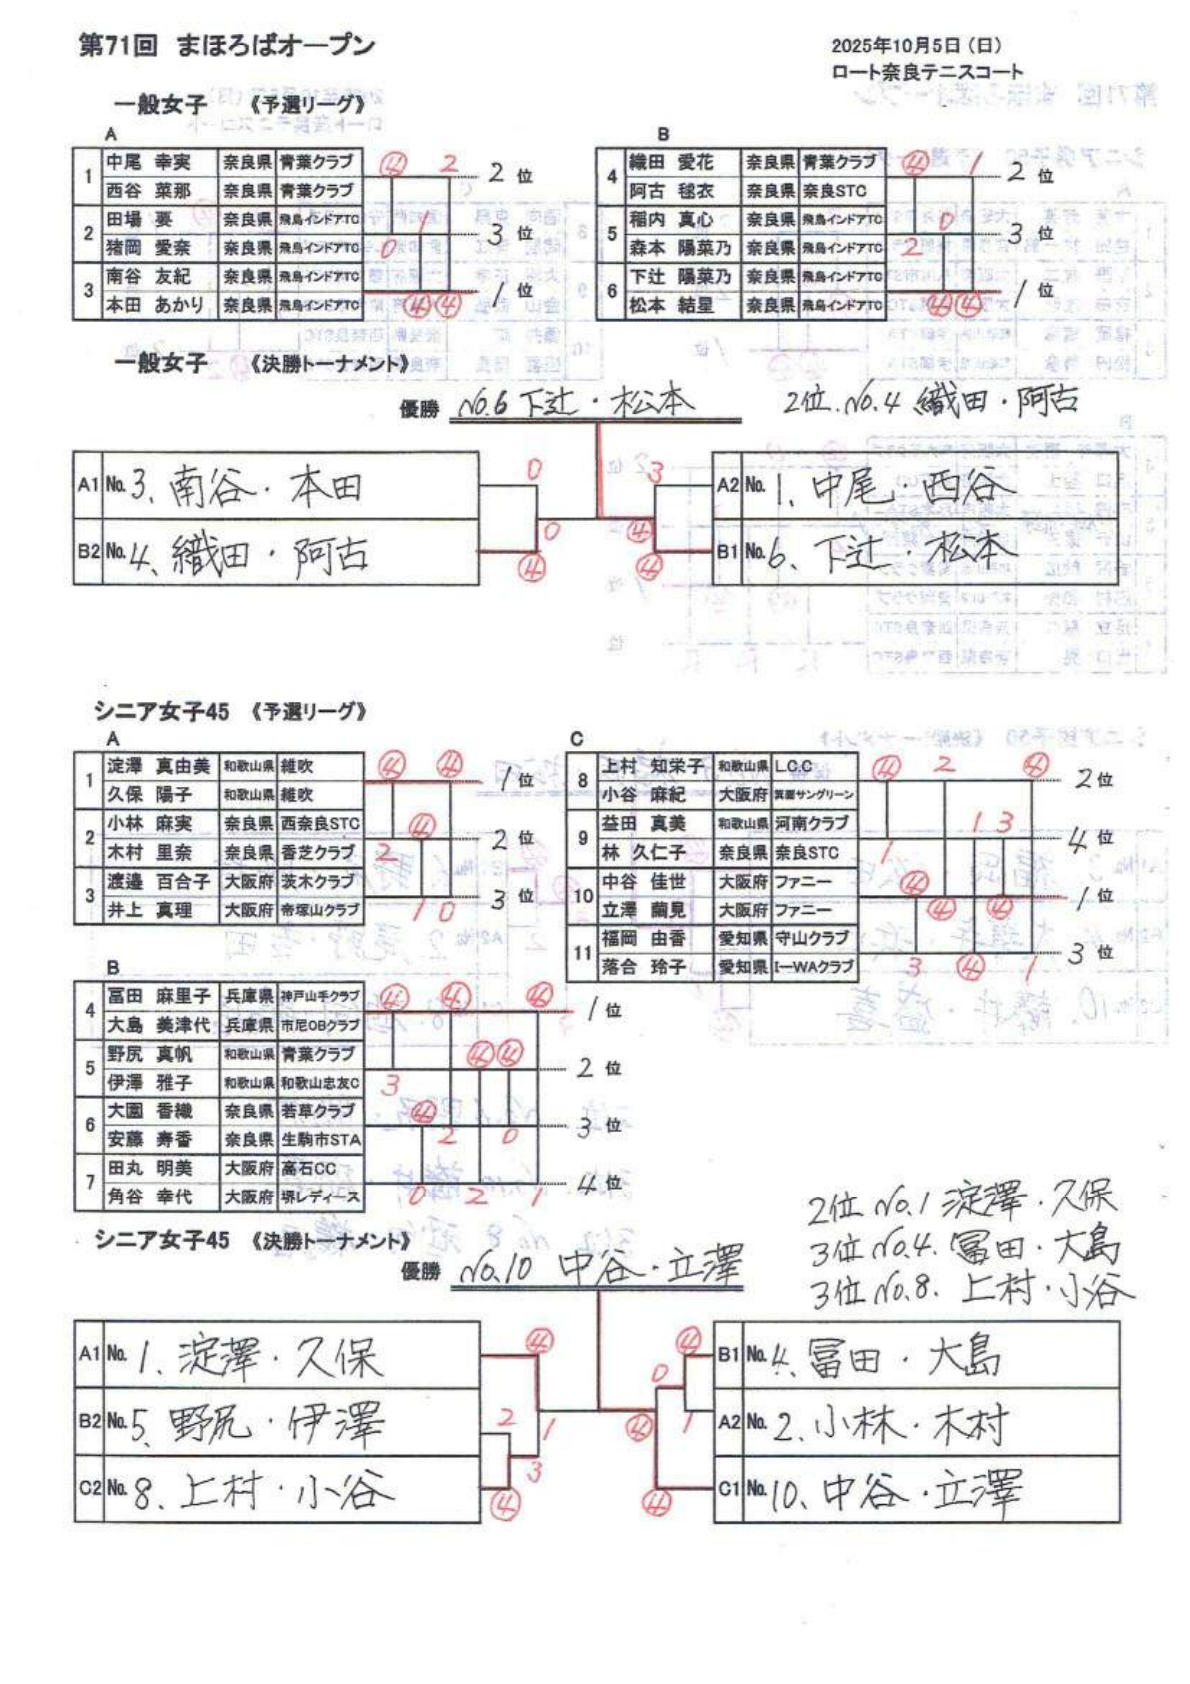 第71回 まほろばオープン
2025年10月5日（日）
ロート奈良テニスコート
一般女子 《予選リーグ》
A
1 中尾 幸実 奈良県 青葉クラブ ④ 2 2 位
西谷 菜那 奈良県 青葉クラブ
2 田場 要 奈良県 飛鳥インドアTC 0 1 3 位
猪岡 愛奈 奈良県 飛鳥インドアTC
3 南谷 友紀 奈良県 飛鳥インドアTC ④ ④ 1 位
本田 あかり 奈良県 飛鳥インドアTC
B
4 織田 愛花 奈良県 青葉クラブ ④ 1 2 位
阿古 毬衣 奈良県 奈良STC
5 稲内 真心 奈良県 飛鳥インドアTC 2 0 3 位
森本 陽菜乃 奈良県 飛鳥インドアTC
6 下辻 陽菜乃 奈良県 飛鳥インドアTC ④ ④ 1 位
松本 結星 奈良県 飛鳥インドアTC
一般女子 《決勝トーナメント》
優勝 No.6 下辻・松本
2位.No.4 織田・阿古
A1 No. 3、南谷・本田 0
B2 No. 4、織田・阿古 ④ 0
A2 No. 1、中尾、西谷 3
B1 No. 6、下辻・松本 ④ ④
シニア女子45 《予選リーグ》
A
1 淀澤 真由美 和歌山県 維吹 ④ ④ 1 位
久保 陽子 和歌山県 維吹
2 小林 麻実 奈良県 西奈良STC 2 ④ 2 位
木村 里奈 奈良県 香芝クラブ
3 渡邉 百合子 大阪府 茨木クラブ 1 0 3 位
井上 真理 大阪府 帝塚山クラブ
C
8 上村 知栄子 和歌山県 L.C.C ④ 2 ④ 2 位
小谷 麻紀 大阪府 箕面サングリーン
9 益田 真美 和歌山県 河南クラブ 1 1 3 4 位
林 久仁子 奈良県 奈良STC
10 中谷 佳世 大阪府 ファニー ④ ④ ④ 1 位
立澤 繭見 大阪府 ファニー
11 福岡 由香 愛知県 守山クラブ 3 ④ 1 3 位
落合 玲子 愛知県 I-WAクラブ
B
4 冨田 麻里子 兵庫県 神戸山手クラブ ④ ④ ④ 1 位
大島 美津代 兵庫県 市尼OBクラブ
5 野尻 真帆 和歌山県 青葉クラブ 3 ④ ④ 2 位
伊澤 雅子 和歌山県 和歌山忠友C
6 大園 香織 奈良県 若草クラブ ④ 2 0 3 位
安藤 寿香 奈良県 生駒市STA
7 田丸 明美 大阪府 高石CC 0 2 1 4 位
角谷 幸代 大阪府 堺レディース
シニア女子45 《決勝トーナメント》
優勝 No.10 中谷・立澤
2位 No.1 淀澤・久保
3位 No.4. 冨田・大島
3位 No.8. 上村・小谷
A1 No. 1、淀澤・久保 ④
B2 No. 5、野尻・伊澤 2 1
C2 No. 8、上村・小谷 ④ 3
B1 No. 4、冨田・大島 ④ 0
A2 No. 2、小林・木村 1 ④
C1 No. 10、中谷・立澤 ④